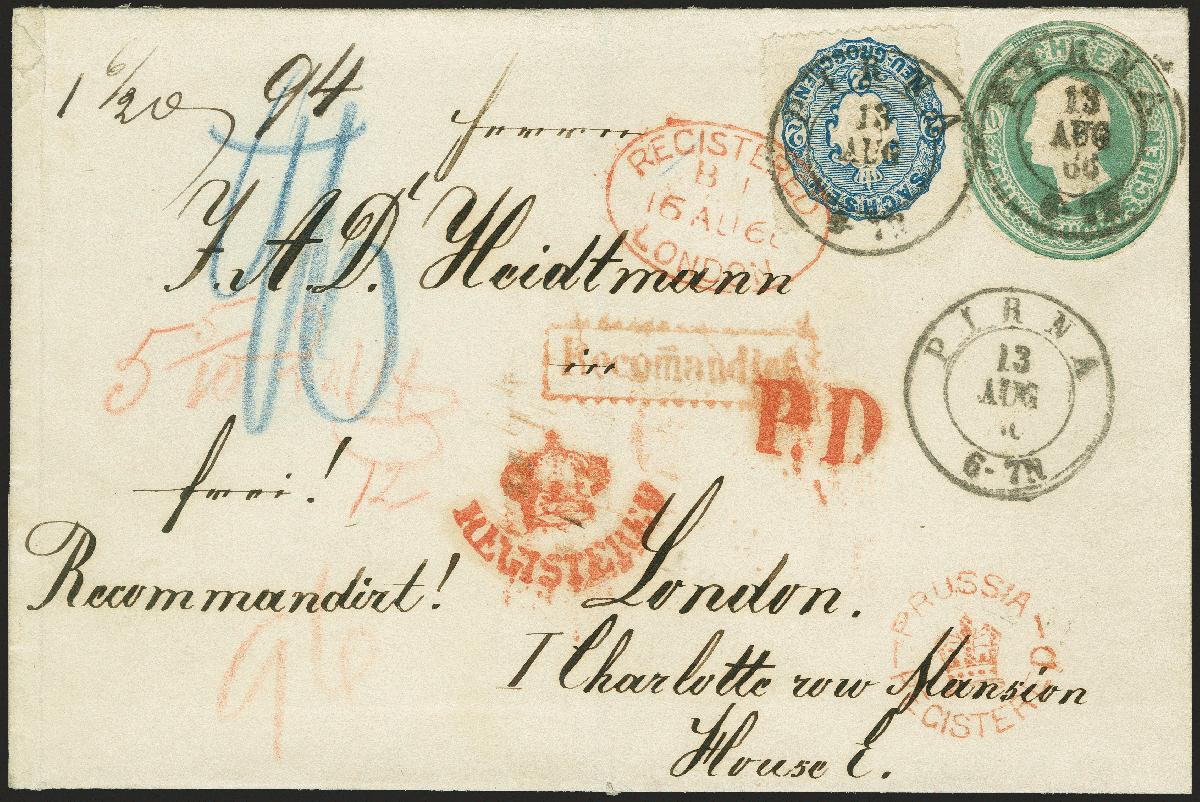 1 6/20 94
Herrn
J. A. D. Heidtmann
in
frei!
Recommandirt!
London.
1 Charlotte row Mansion
House E.
REGISTERED
B 1
16 AU 66
LONDON
NEU-GROSCHEN
SACHSEN
PIRNA
13
AUG
PIRNA
13
AUG
66
6-7N
PIRNA
13
AUG
6-7N
Recomandirt
P.D
REGISTERED
PRUSSIA
VIA
REGISTERED
5
12